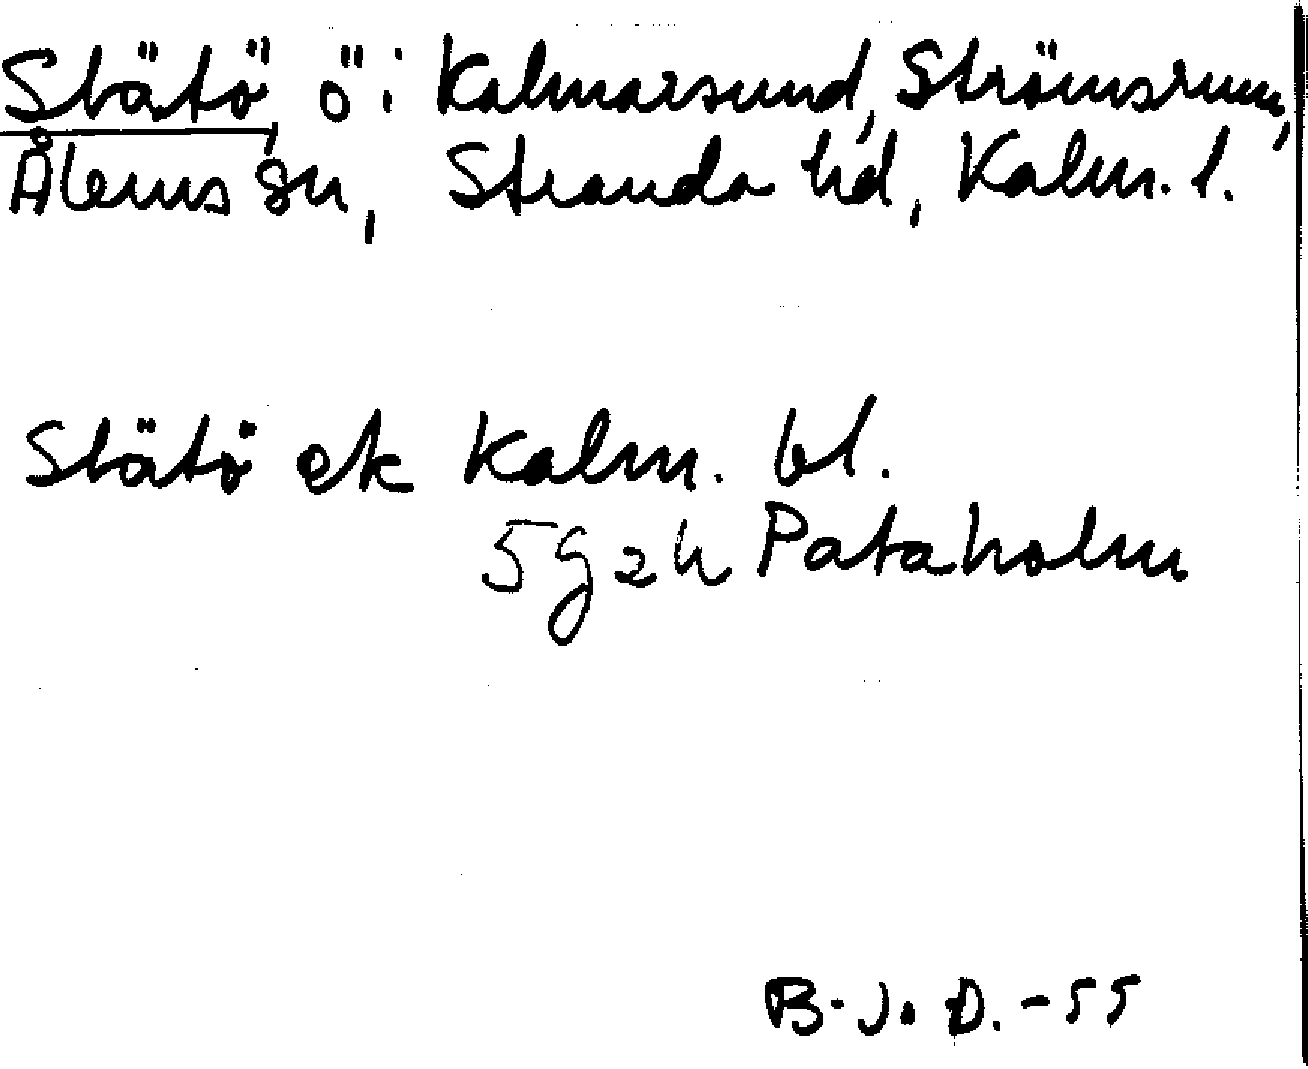 Slätö, ö i Kalmarsund, Strömsrum,
Ålems sn, Stranda hd, Kalm. l.
Slätö ek Kalm. bl.
5 g 2 h Pataholm
B-J. D. -55